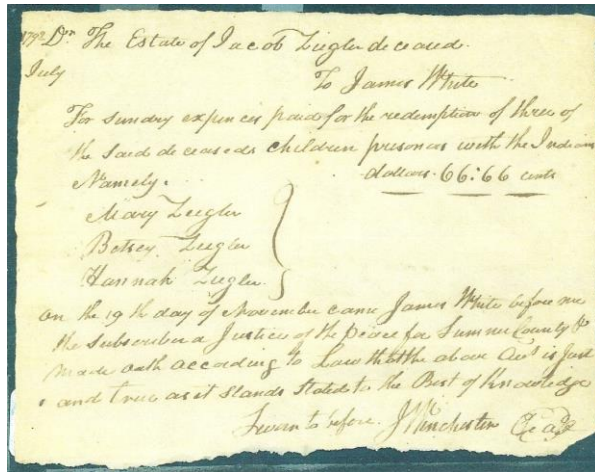 1792 Dr. The Estate of Jacob Ziegler deceased
July
To James White
For sundry expences paid for the redemption of three of
the said deceaseds children prisonors with the Indians
Namely. dollars 66:66 cents
Mary Ziegler
Betsey Ziegler
Hannah Ziegler
on the 19th day of November came James White before me
the subscriber a Justice of the peace for Sumner County &
made oath according to Law that the above Acct is Just
and true as it stands stated to the Best of Knowledge
Swarn to before J Winchester